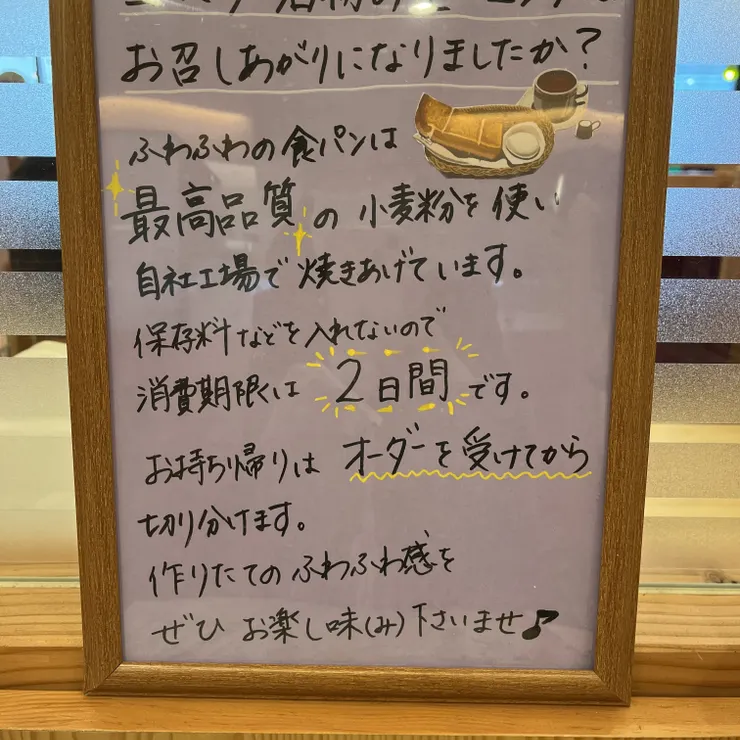 お召しあがりになりましたか?
ふわふわの食パンは
最高品質の小麦粉を使い
自社工場で焼きあげています。
保存料などを入れないので
消費期限は 2日間 です。
お持ち帰りは オーダーを受けてから
切り分けます。
作りたての ふわふわ感を
ぜひ お楽し味(み)下さいませ♪